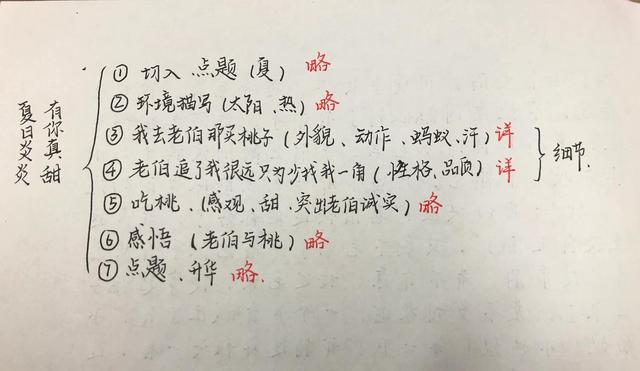 夏日炎炎
有你真甜
① 切入 点题 (夏) 略
② 环境描写 (太阳、热) 略
③ 我去老伯那买桃子 (外貌、动作、蚂蚁、汗) 详
④ 老伯追了我很远只为少找我一角 (性格、品质) 详
细节.
⑤ 吃桃、(感观、甜、突出老伯诚实) 略
⑥ 感悟 (老伯与桃) 略
⑦ 点题、升华 略.